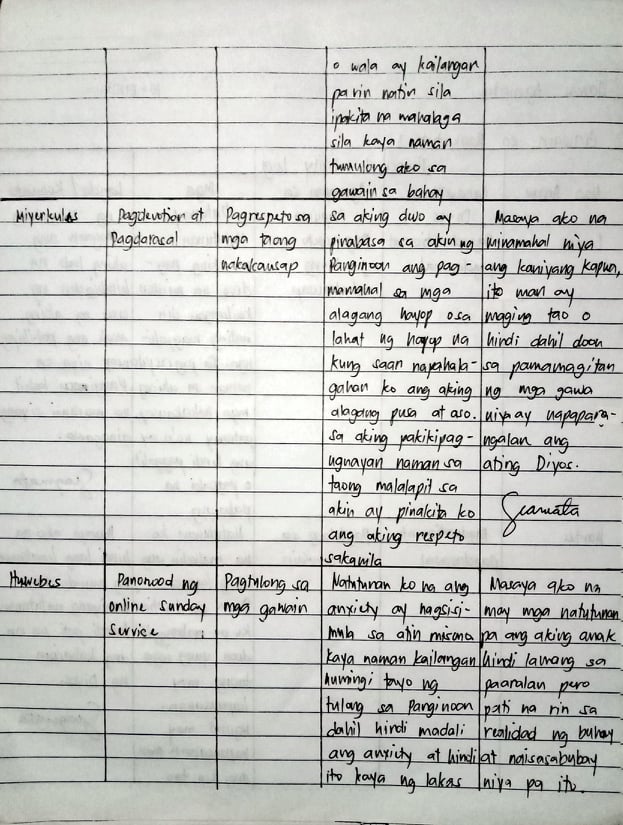 o wala ay kailangan
parin natin sila
ipakita na mahalaga
sila kaya naman
tumulong ako sa
gawain sa bahay
Miyerkules
Pagdevotion at
Pagdarasal
Pagrespeto sa
mga taong
nakakausap
sa aking dwo ay
pinabasa sa akin ng
Panginoon ang pag-
mamahal sa mga
alagang hayop o sa
lahat ng hayop na
kung saan napahala-
gahan ko ang aking
alagang pusa at aso.
sa aking pakikipag-
ugnayan naman sa
taong malalapit sa
akin ay pinakita ko
ang aking respeto
sakanila
Masaya ako na
minamahal niya
ang kaniyang kapwa,
ito man ay
maging tao o
hindi dahil doon
sa pamamagitan
ng mga gawa
niya ay napapara-
ngalan ang
ating Diyos.
Huwebes
Panonood ng
online sunday
service
Pagtulong sa
mga gawain
Natutunan ko na ang
anxiety ay nagsisi-
mula sa atin mismo
kaya naman kailangan
humingi tayo ng
tulong sa Panginoon
dahil hindi madali
ang anxiety at hindi
ito kaya ng lakas
Masaya ako na
may mga natutunan
pa ang aking anak
hindi lamang sa
paaralan pero
pati na rin sa
realidad ng buhay
at naisasabuhay
niya pa ito.